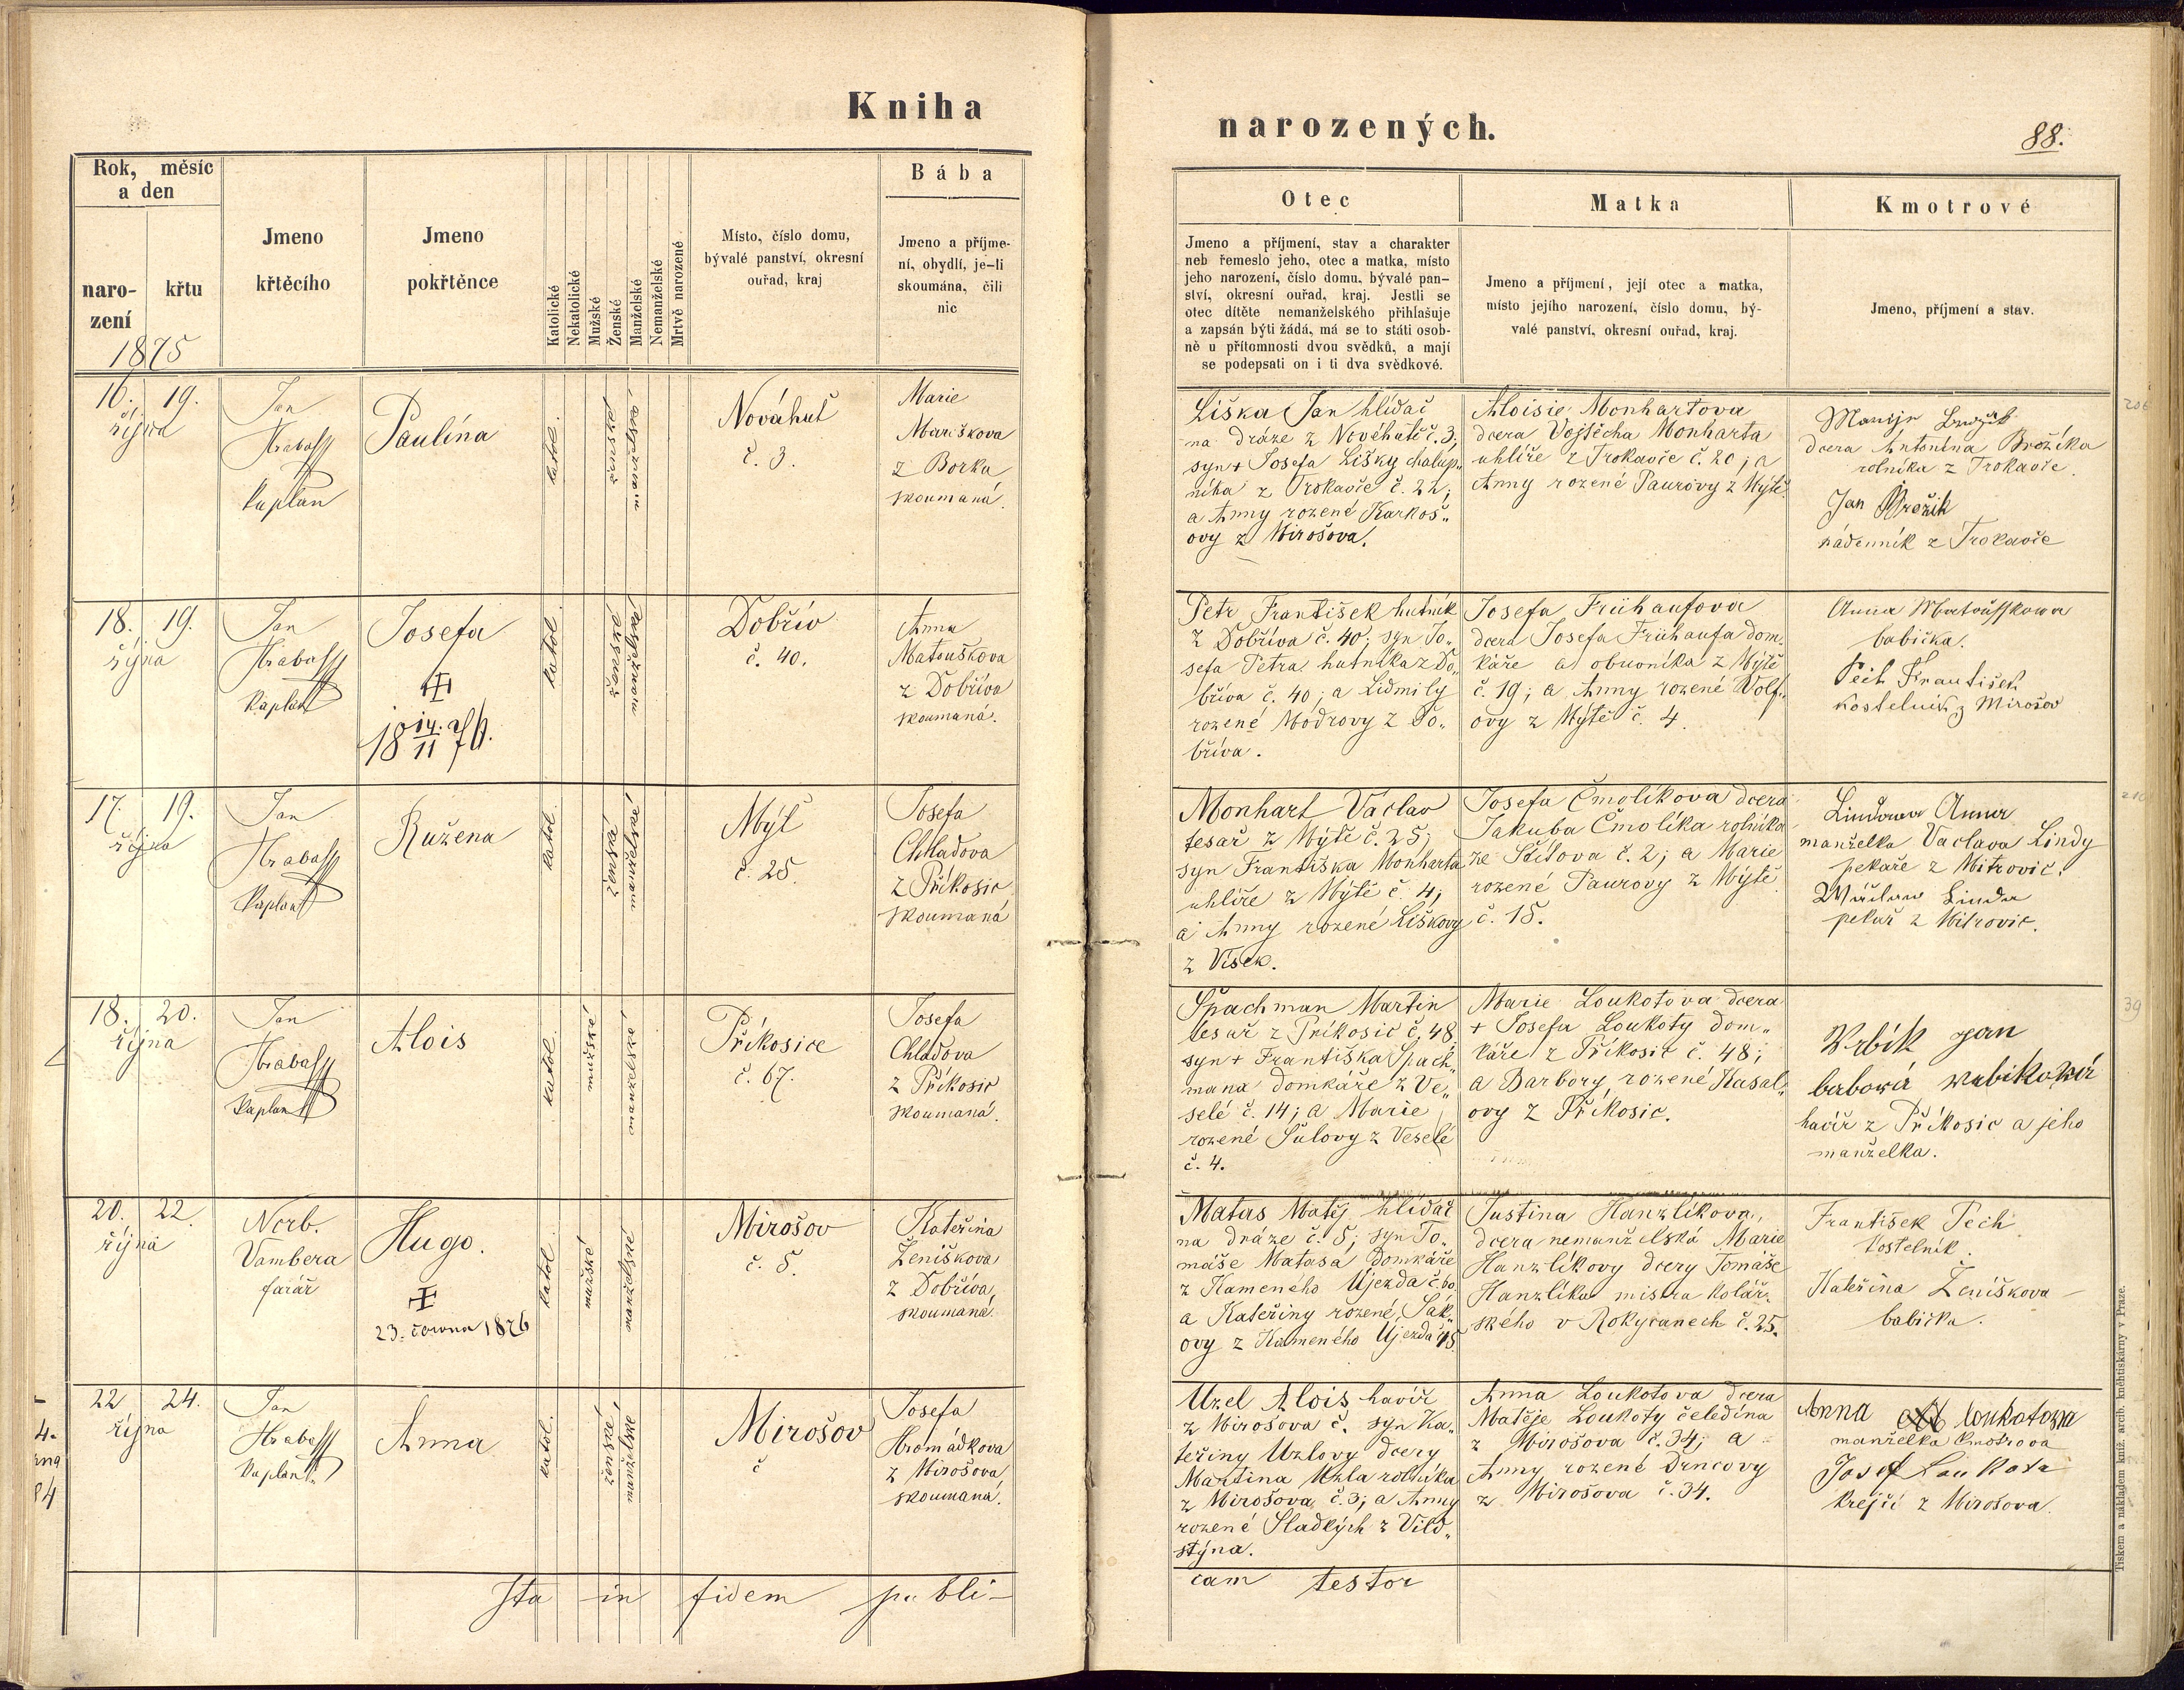 Kniha
narozených.
88.
Rok, měsíc
a den
naro-
zení
křtu
1875
Jmeno
křtěcího
Jmeno
pokřtěnce
Katolické
Nekatolické
Mužské
Ženské
Manželské
Nemanželské
Mrtvě narozené
Místo, číslo domu,
bývalé panství, okresní
ouřad, kraj
Bába
Jmeno a příjme-
ní, obydlí, je-li
skoumána, čili
nic
Otec
Jmeno a příjmení, stav a charakter
neb řemeslo jeho, otec a matka, místo
jeho narození, číslo domu, bývalé pan-
ství, okresní ouřad, kraj. Jestli se
otec dítěte nemanželského přihlašuje
a zapsán býti žádá, má se to státi osob-
ně u přítomnosti dvou svědků, a mají
se podepsati on i ti dva svědkové.
Matka
Jmeno a příjmení, její otec a matka,
místo jejího narození, číslo domu, bý-
valé panství, okresní ouřad, kraj.
Kmotrové
Jmeno, příjmení a stav.
16. 19.
října
Jan
Hrabass
kaplan
Paulína
katol.
ženské
manželské
Nováhuť
č. 3.
Marie
Mariškova
z Borku
skoumaná.
Liška Jan hlídač
na dráze z Novéhutě č. 3;
syn + Josefa Lišky chalup„
níka z Trokavče č. 22;
a Anny rozené Karkoš„
ovy z Mirošova.
Aloisie Monhartova
dcera Vojtěcha Monharta
uhlíře z Trokavče č. 20; a
Anny rozené Paurovy z Mýtě
dcera Antonína Brožíka
rolníka z Trokavče.
Jan Brožik
nádenník z Trokavče
206
18. 19.
října
Jan
Hrabass
kaplan
Josefa
18 14/11 76.
katol.
ženské
manželské
Dobřív
č. 40.
Anna
Matouškova
z Dobříva
skoumaná.
Petr František hutník
z Dobříva č. 40; syn Jo„
sefa Petra hutníka z Do„
bříva č. 40; a Lidmily
rozené Modrovy z Do„
bříva.
Josefa Frühaufova
dcera Josefa Frühaufa dom„
káře a obuvníka z Mýtě
č. 19; a Anny rozené Wolf„
ovy z Mýtě č. 4.
Anna Matausskowa
babička.
Pech František
kostelnik z Mirošov
17. 19.
října
Jan
Hrabass
kaplan
Ružena
katol.
ženské
manželské
Mýť
č. 25.
Josefa
Chladova
z Příkosic
skoumaná
Monhart Václav
tesař z Mýtě č. 25;
syn Františka Monharta
uhlíře z Mýtě č. 4;
a Anny rozené Liškovy
z Vísek.
Josefa Čmolíkova dcera
Jakuba Čmolíka rolníka
ze Štítova č. 2; a Marie
rozené Paurovy z Mýtě
č. 15.
Lindowa Anna
manželka Vaclava Lindy
pekaře z Mitrovic.
Linda
pekař z Mitrovic.
18. 20.
října
Jan
Hrabass
kaplan
Alois
katol.
mužské
manželské
Příkosice
č. 67.
Josefa
Chladova
z Příkosic
skoumaná.
Špachman Martin
tesař z Příkosic č. 48
syn + Františka Špach„
mana domkáře z Ve„
selé č. 14; a Marie
rozené Šulovy z Veselé
č. 4.
Marie Loukotova dcera
+ Josefa Loukoty dom„
káře z Příkosic č. 48;
a Barbory rozené Kasal„
ovy z Příkosic.
Wrbík Jan
barbowá wrbikowá
havíř z Příkosic a jeho
manželka.
39
20. 22.
října
Norb.
Vambera
farář
Hugo.
23. června 1876
katol.
mužské
manželské
Mirošov
č. 5.
Kateřina
Ženiškova
z Dobříva,
skoumaná.
Matas Matěj hlídač
na dráze č. 5; syn To„
máše Matasa domkáře
z Kameného Újezda č. 60
a Kateřiny rozené Šák„
ovy z Kameného Újezda č. 45.
Justina Hanzlíkova,
dcera nemanželská Marie
Hanzlíkovy dcery Tomáše
Hanzlíka mistra kolář„
ského v Rokycanech č. 25.
František Pech
kostelník.
Kateřina Ženiškova
babička.
22 24.
října
Jan
Hrabass
kaplan
Anna
katol.
ženské
manželské
Mirošov
č
Josefa
Hromádkova
z Mirošova
skoumaná.
Uzel Alois havíř
z Mirošova č. syn Ka„
teřiny Uzlovy dcery
Martina Uzla rolníka
z Mirošova č. 3; a Anny
rozené Sladkých z Vild„
štýna.
Anna Loukotova dcera
Matěje Loukoty čeledína
z Mirošova č. 34; a
Anny rozené Drncovy
z Mirošova č. 34.
Anna loukotowa
manželka kmotrova
Josef Loukota
krejčí z Mirošova.
Ita in fidem publi-
cam testor
Tiskem a nákladem kníž. arcib. knihtiskárny v Praze.